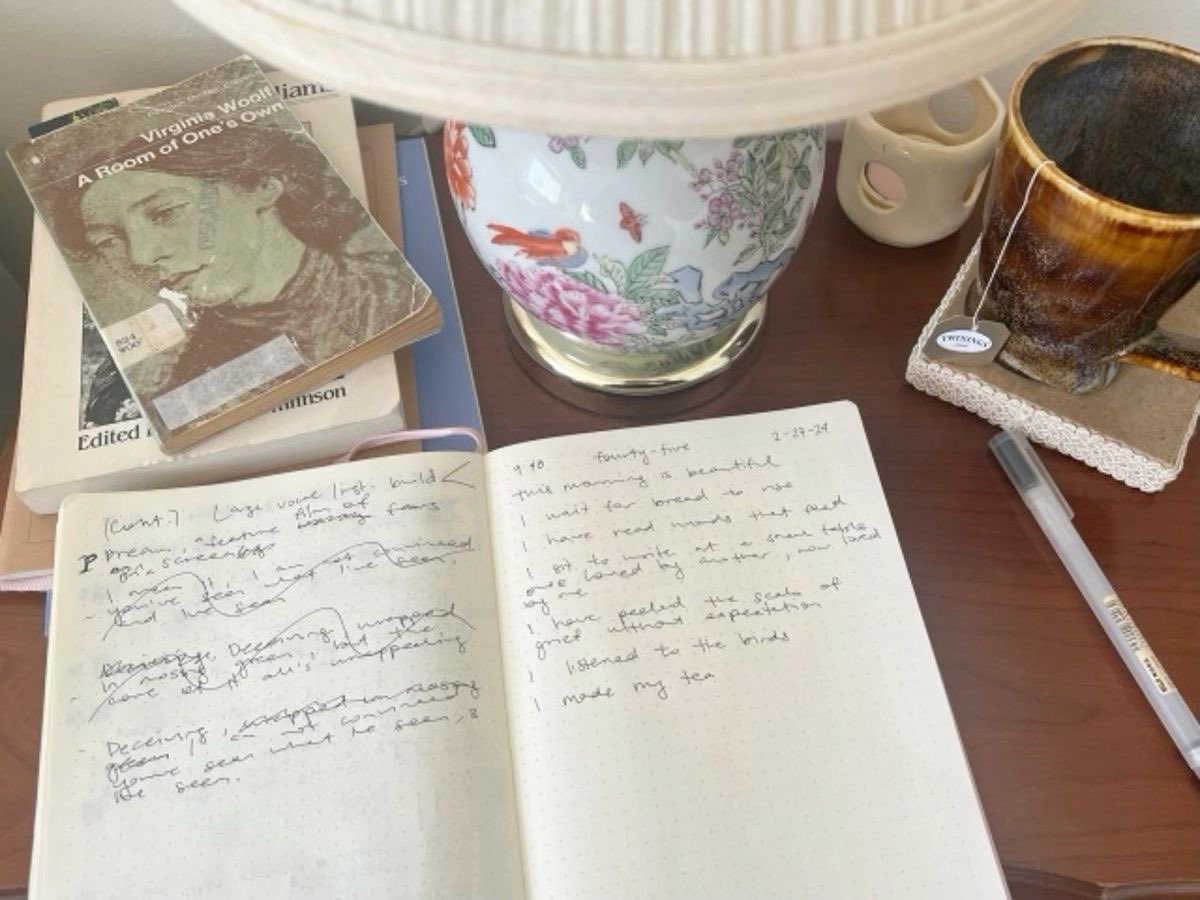 Virginia Woolf
A Room of One's Own
DISCARD
824
WOO
liams
Edited
mlinson
s
TWININGS
(Cont.) Large voice / inst. build <
P Dream, "feature film of fears
on a screen
I mean it, I am not convinced
- you've seen what I've seen,
and I've seen
Deceiving, wrapped
- in mossy green, but the
core of it all's unappealing
- Deceiving,
green, I am not convinced
you've seen what I've seen, &
I've seen.
9:40 fourty-five 2-27-24
this morning is beautiful
I wait for bread to rise
I have read words that feed
I sit to write at a small table
once loved by another, now loved
by me
I have peeled the scabs of
grief without expectation
I listened to the birds
I made my tea
MUJI